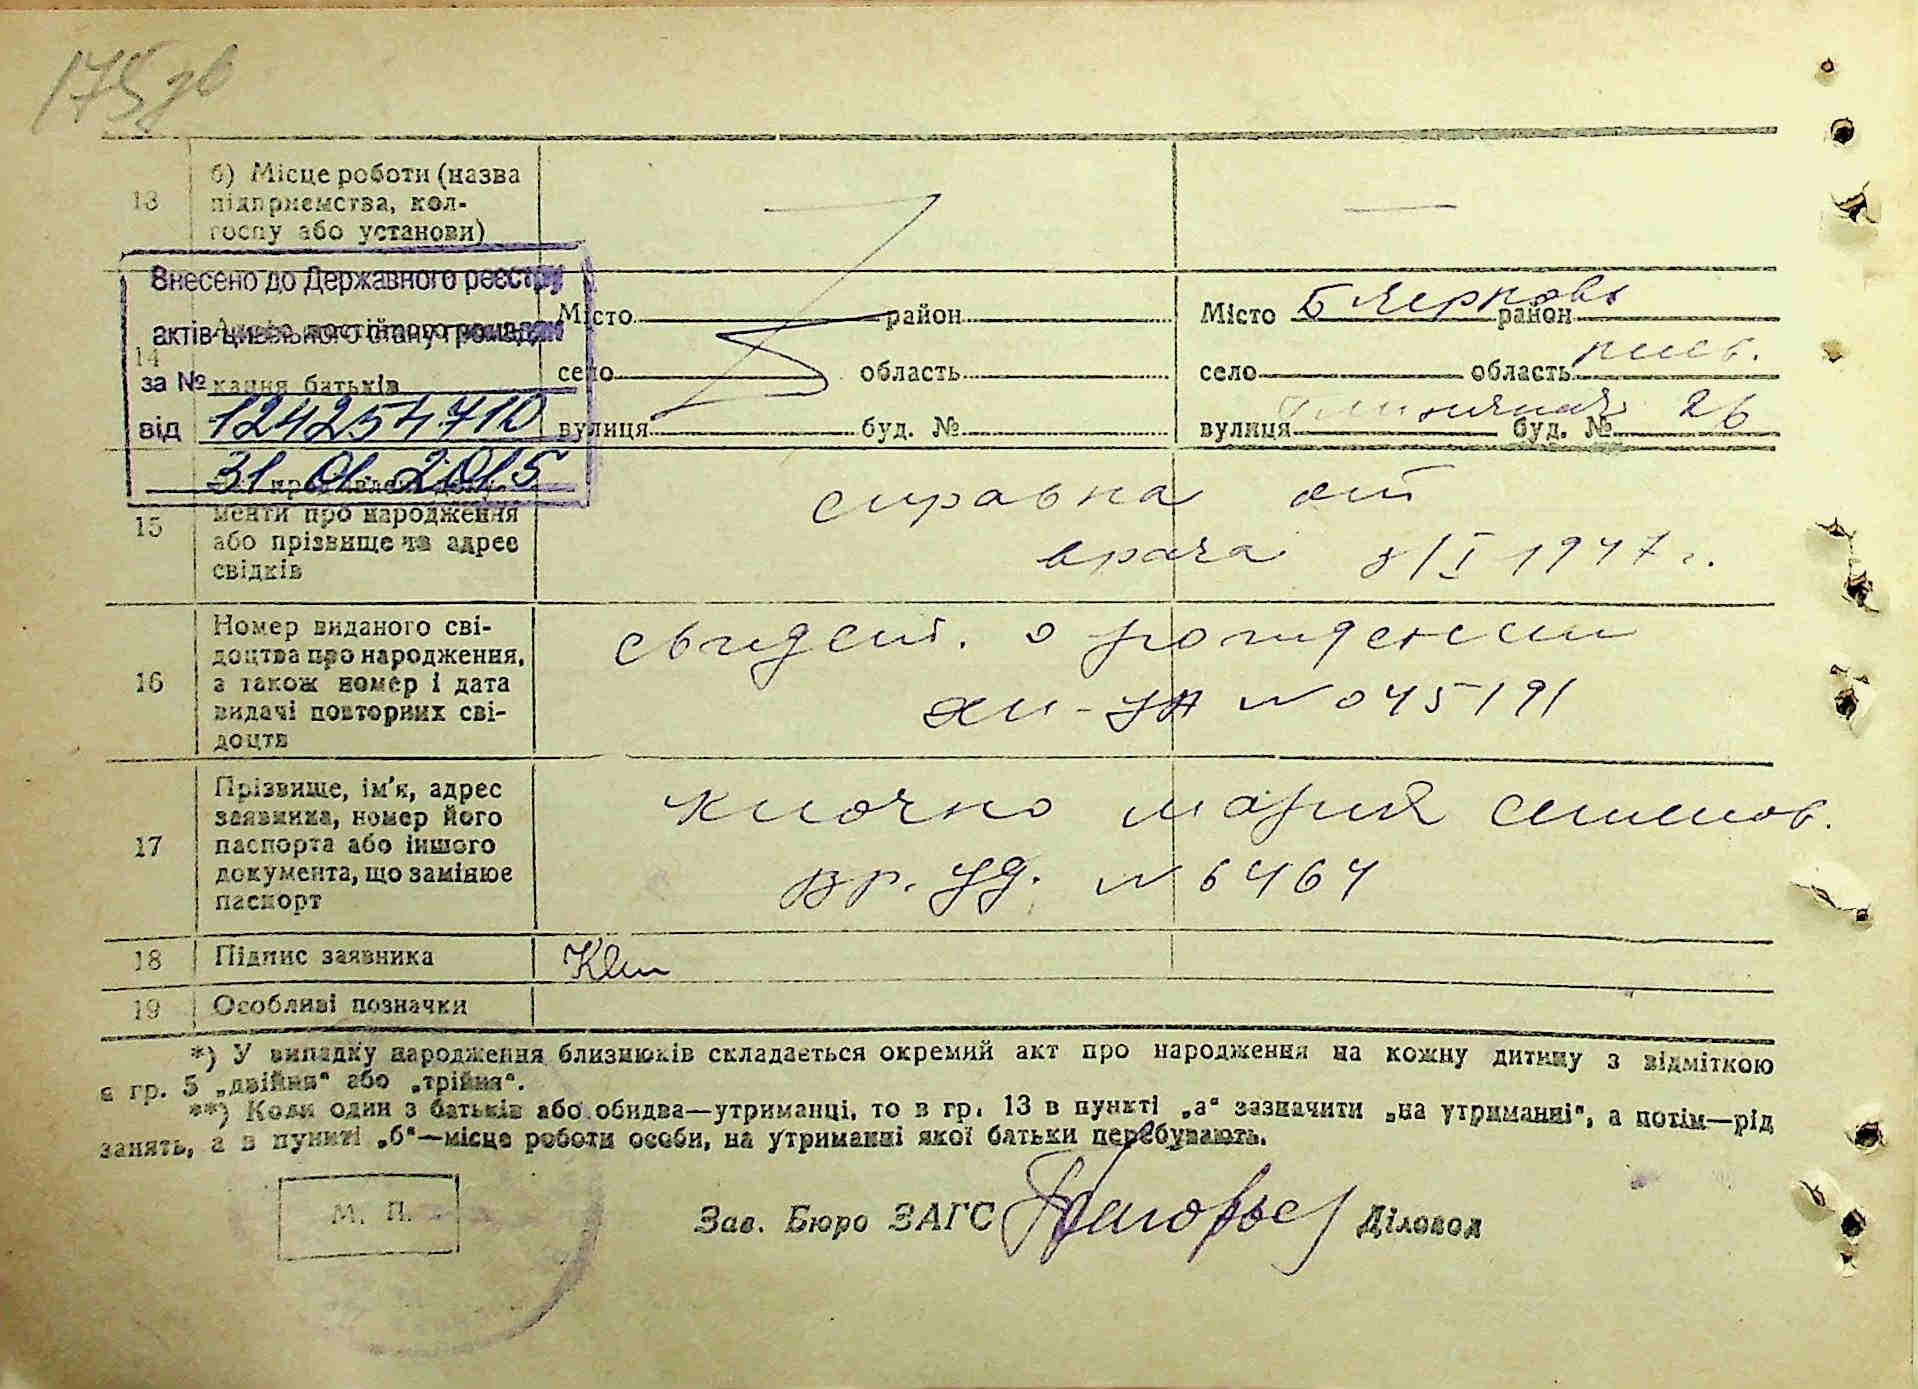 175 зв
13
б) Місце роботи (назва
підприємства, кол-
госпу або установи)
Внесено до Державного реєстру
актів цивільного стану громадян
за №
124254710
від
31.01.2015
14
кання батьків
Місто район
село область
вулиця буд. №
Місто Б Церковь район
село область киев.
вулиця буд. № 26
15
менти про народження
або прізвище та адрес
свідків
справка от
врача 8/I 1947 г.
16
Номер виданого сві-
доцтва про народження,
а також номер і дата
видачі повторних сві-
доцтв
свидет. о рождении
№ 045191
17
Прізвище, ім'я, адрес
заявника, номер його
паспорта або іншого
документа, що замінює
паспорт
Клочко Мария
вр. уд. № 6464
18
Підпис заявника
19
Особливі позначки
*) У випадку народження близнюків складається окремий акт про народження на кожну дитину з відміткою
в гр. 5 „двійня“ або „трійня“.
**) Коли один з батьків або обидва—утриманці, то в гр. 13 в пункті „а“ зазначити „на утриманні“, а потім—рід
занять, а в пункті „б“—місце роботи особи, на утриманні якої батьки перебувають.
М. П.
Зав. Бюро ЗАГС Діловод